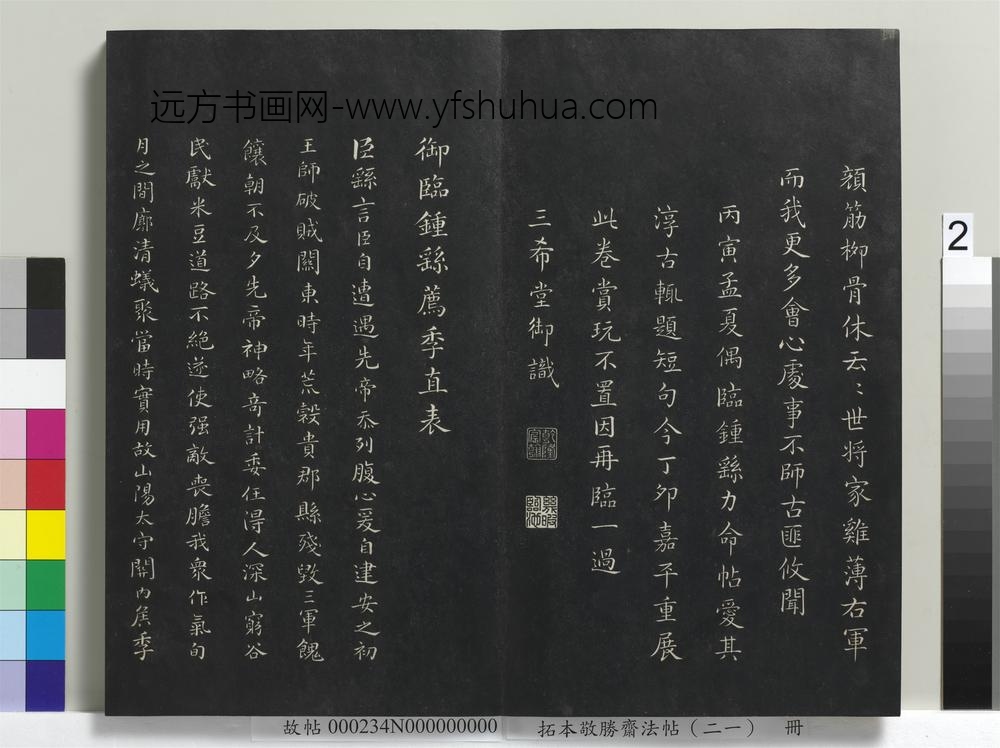 远方书画网-www.yfshuhua.com
顏筋柳骨休云〻世將家雞薄右軍
而我更多會心處事不師古匪攸聞
丙寅孟夏偶臨鍾繇力命帖愛其
淳古輒題短句今丁卯嘉平重展
此卷賞玩不置因再臨一過
三希堂御識
乾隆宸翰
御臨鍾繇薦季直表
臣繇言臣自遭遇先帝忝列腹心爰自建安之初
王師破賊關東時年荒穀貴郡縣殘毀三軍餽
饟朝不及夕先帝神略奇計委任得人深山窮谷
民獻米豆道路不絕遂使强敵喪膽我衆作氣旬
月之間廓清蟻聚當時實用故山陽太守關內矦季
2
故帖 000234N000000000
拓本敬勝齋法帖（二一） 冊